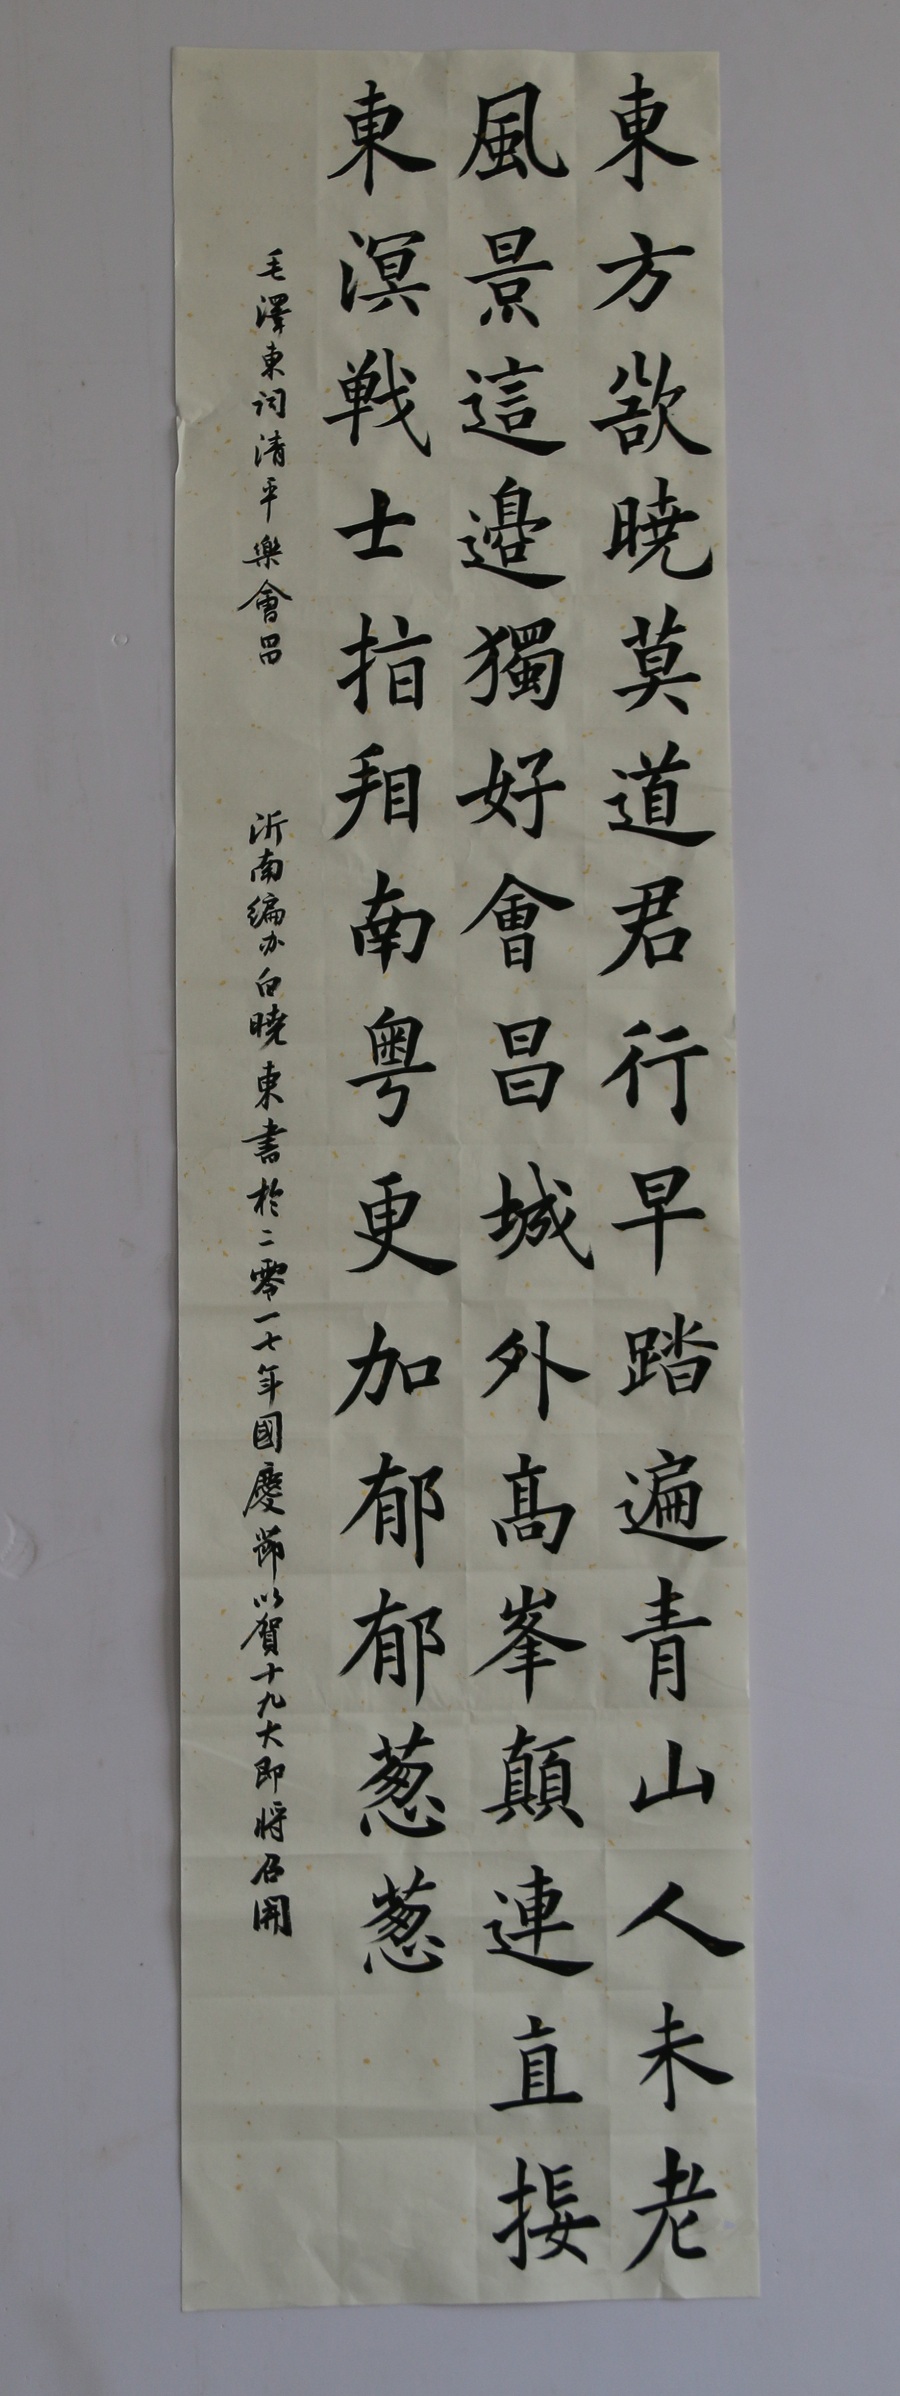 東方欲曉莫道君行早踏遍青山人未老
風景這邊獨好會昌城外高峯顛連直接
東溟戰士指看南粤更加郁郁葱葱
毛澤東詞清平樂會昌
沂南編办白曉東書於二零一七年國慶節以賀十九大即將召開